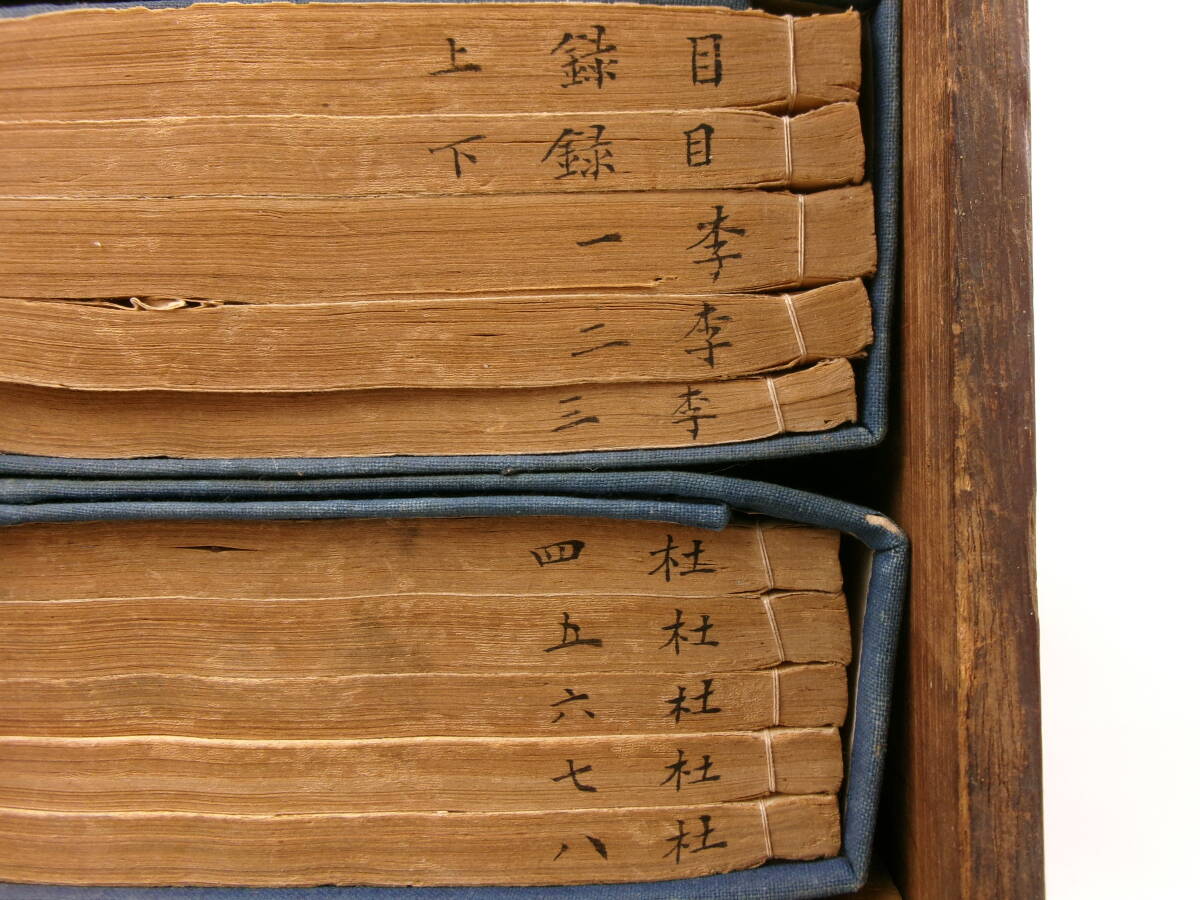 目録上
目録下
李一
李二
李三
杜四
杜五
杜六
杜七
杜八